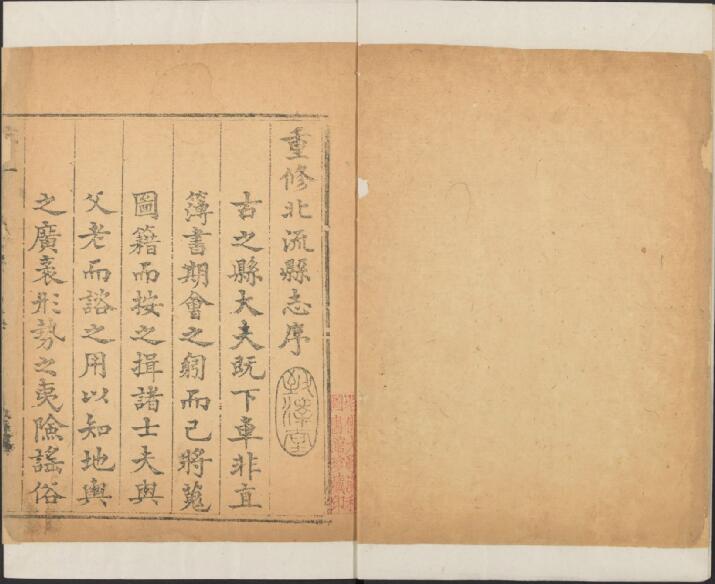 重修北流縣志序
古之縣大夫既下車非直
簿書期會之躬而已將蒐
圖籍而按之揖諸士夫與
父老而諮之用以知地輿
之廣袤形勢之夷險謠俗
圖書館珍藏印